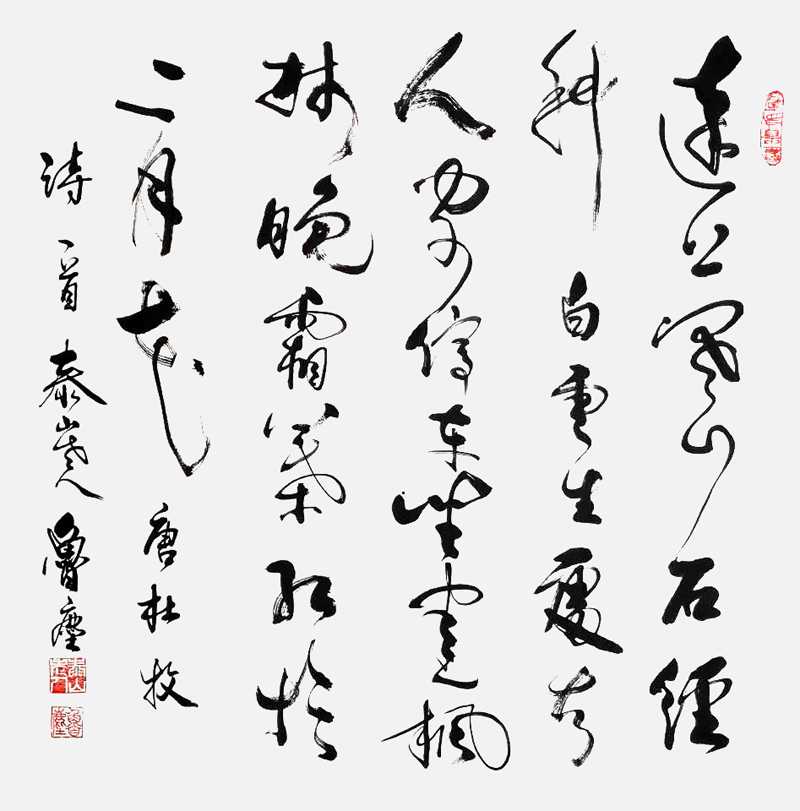 遠上寒山石徑
斜白雲生處有
人家停車坐愛楓
林晚霜葉紅於
二月花唐杜牧
詩一首泰山人魯塵